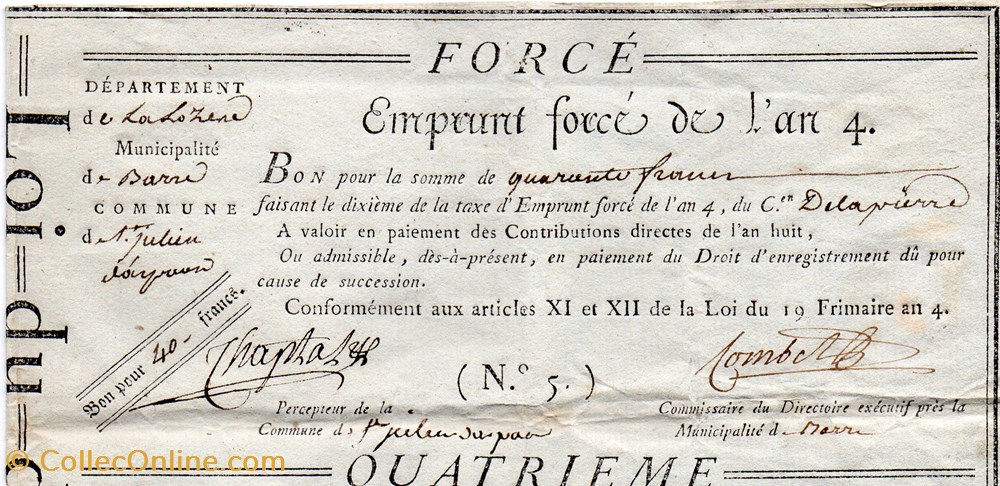 FORCÉ
DÉPARTEMENT
de La Lozere
Municipalité
de Barre
COMMUNE
de St. julien
d'arpaon
Emprunt forcé de l'an 4.
BON pour la somme de quarente francs
faisant le dixième de la taxe d'Emprunt forcé de l'an 4, du C.en Delapierre
A valoir en paiement des Contributions directes de l'an huit,
Ou admissible, dès-à-présent, en paiement du Droit d'enregistrement dû pour
cause de succession.
Conformément aux articles XI et XII de la Loi du 19 Frimaire an 4.
Bon pour 40 francs.
Chaptal
Combet
( N.º 5. )
Percepteur de la
Commune de St julien darpaon
Commissaire du Directoire exécutif près la
Municipalité de Barre
QUATRIEME
Loi du
© CollecOnline.com